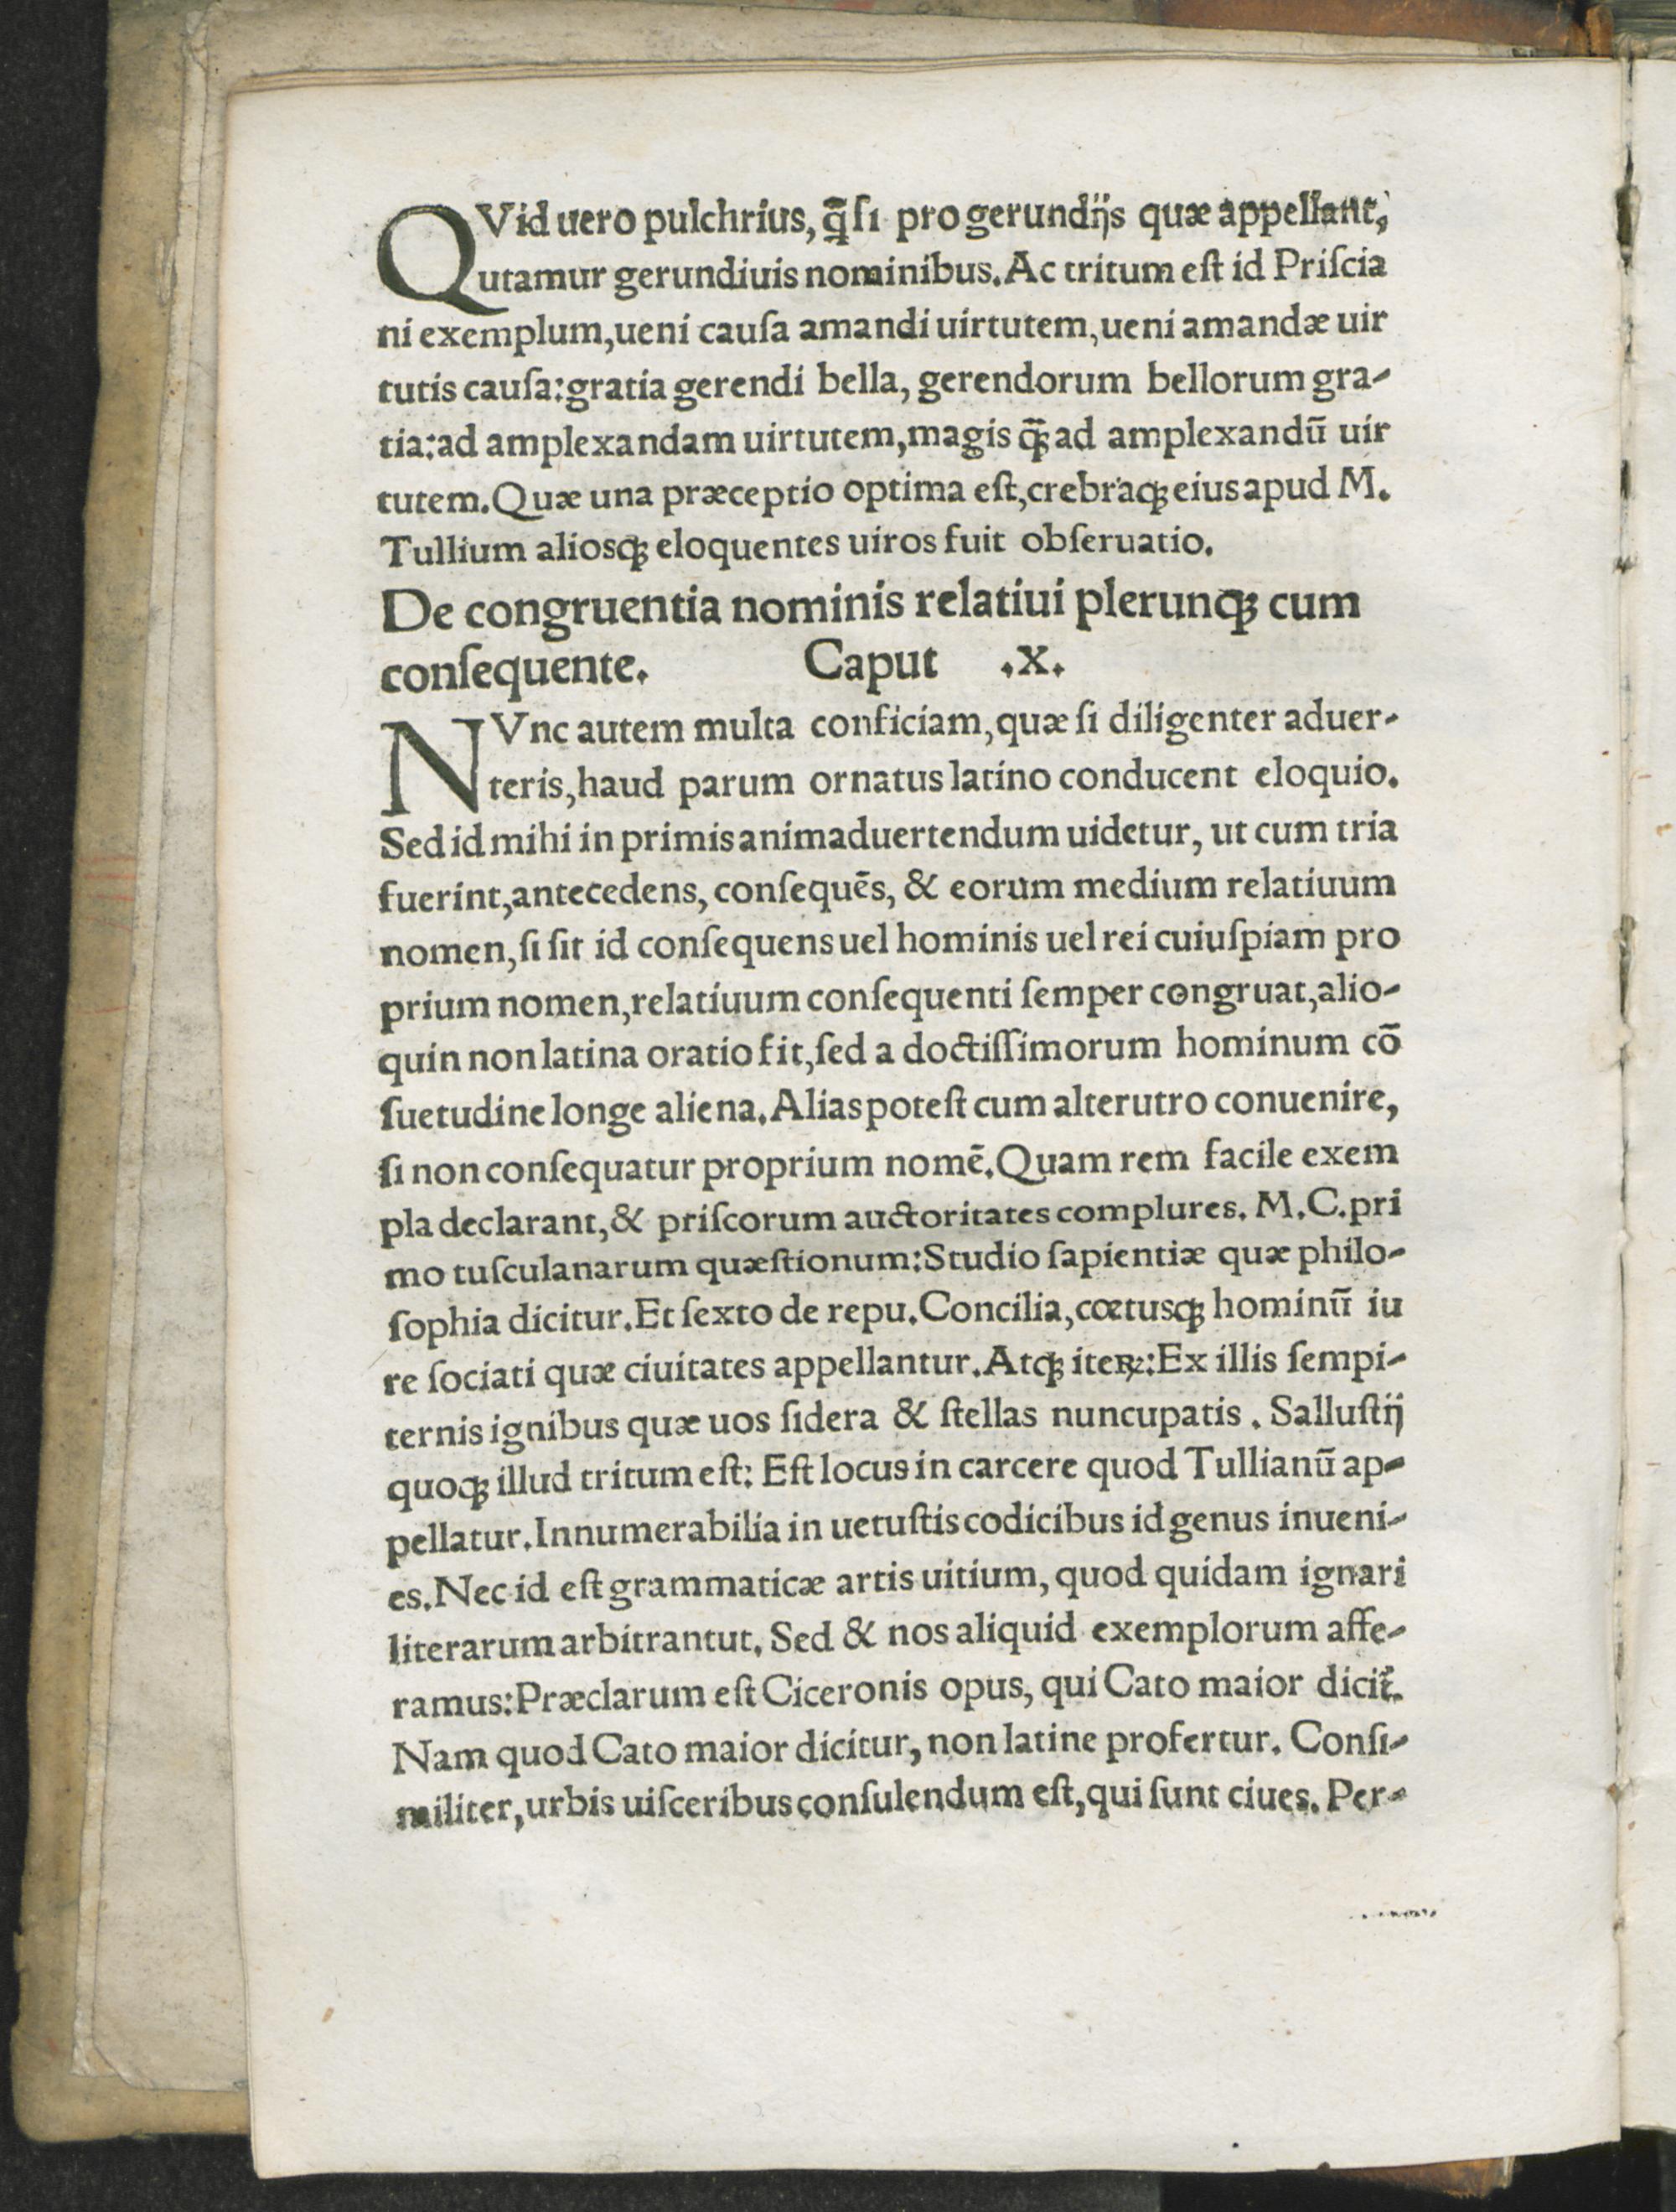 QVid uero pulchrius, q̄ ſi pro gerundijs quæ appellant,
utamur gerundiuis nominibus. Ac tritum eſt id Priſcia
ni exemplum, ueni cauſa amandi uirtutem, ueni amandæ uir
tutis cauſa: gratia gerendi bella, gerendorum bellorum gra-
tia: ad amplexandam uirtutem, magis q̄ꝫ ad amplexandū uir
tutem. Quæ una præceptio optima eſt, crebraqꝫ eius apud M.
Tullium alioſqꝫ eloquentes uiros fuit obſeruatio.
De congruentia nominis relatiui plerunqꝫ cum
conſequente. Caput .X.
NVnc autem multa conficiam, quæ ſi diligenter aduer-
teris, haud parum ornatus latino conducent eloquio.
Sed id mihi in primis animaduertendum uidetur, ut cum tria
fuerint, antecedens, conſequēs, & eorum medium relatiuum
nomen, ſi ſit id conſequens uel hominis uel rei cuiuſpiam pro
prium nomen, relatiuum conſequenti ſemper congruat, alio-
quin non latina oratio fit, ſed a doctiſſimorum hominum cō
ſuetudine longe aliena. Alias poteſt cum alterutro conuenire,
ſi non conſequatur proprium nomē. Quam rem facile exem
pla declarant, & priſcorum auctoritates complures. M. C. pri
mo tuſculanarum quæſtionum: Studio ſapientiæ quæ philo-
ſophia dicitur. Et ſexto de repu. Concilia, cœtusqꝫ hominū iu
re ſociati quæ ciuitates appellantur. Atqꝫ iteꝝ: Ex illis ſempi-
ternis ignibus quæ uos ſidera & ſtellas nuncupatis. Salluſtij
quoqꝫ illud tritum eſt: Eſt locus in carcere quod Tullianū ap-
pellatur. Innumerabilia in uetuſtis codicibus id genus inueni-
es. Nec id eſt grammaticæ artis uitium, quod quidam ignari
literarum arbitrantut. Sed & nos aliquid exemplorum affe-
ramus: Præclarum eſt Ciceronis opus, qui Cato maior dicit̃.
Nam quod Cato maior dicitur, non latine profertur. Conſi-
militer, urbis uiſceribus conſulendum eſt, qui ſunt ciues. Per-